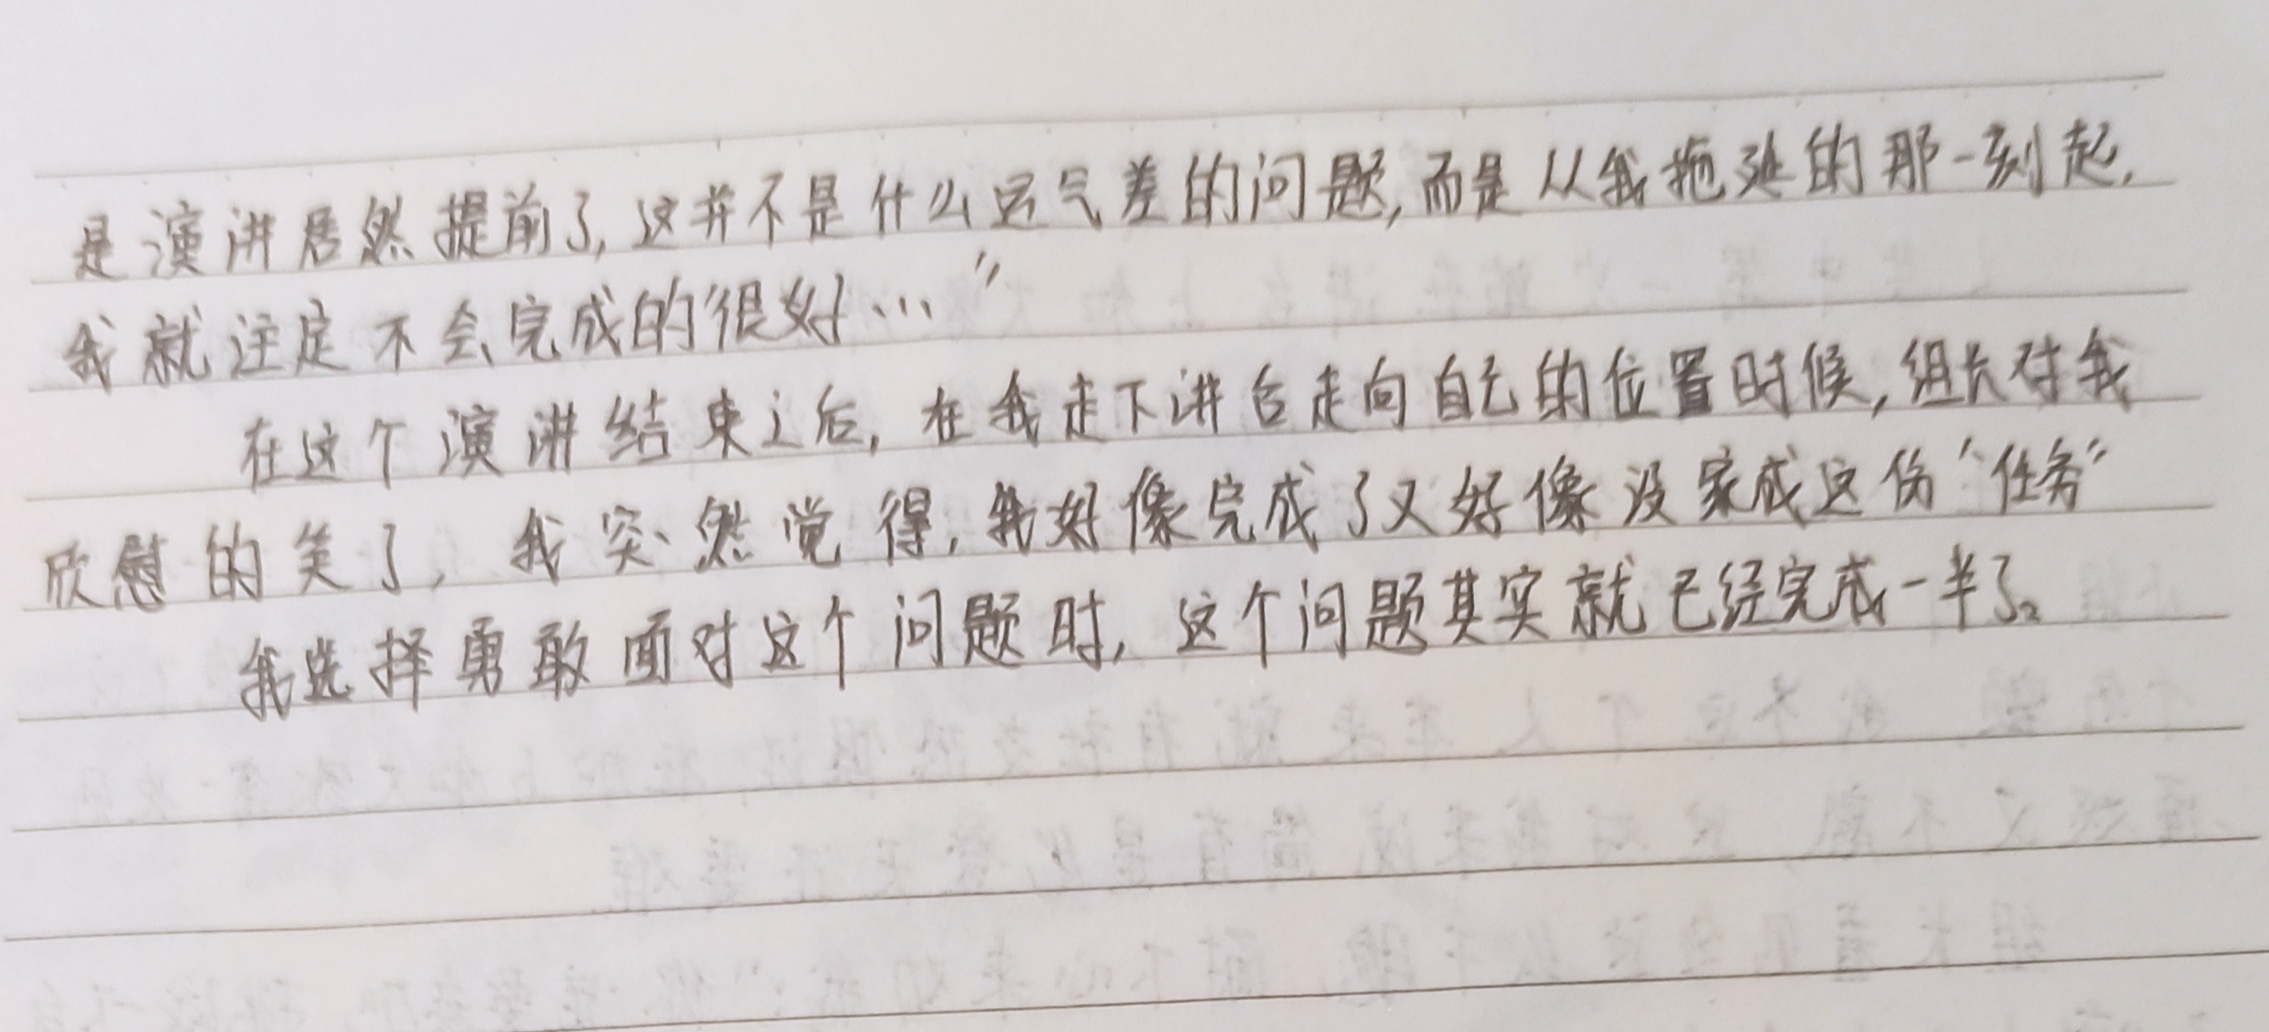 是演讲居然提前了,这并不是什么运气差的问题,而是从我拖延的那一刻起,
我就注定不会完成的很好…”
在这个演讲结束之后,在我走下讲台走向自己的位置时候,组长对我
欣慰的笑了,我突然觉得,我好像完成了又好像没家成这份“任务”
我选择勇敢面对这个问题时,这个问题其实就已经完成一半了。